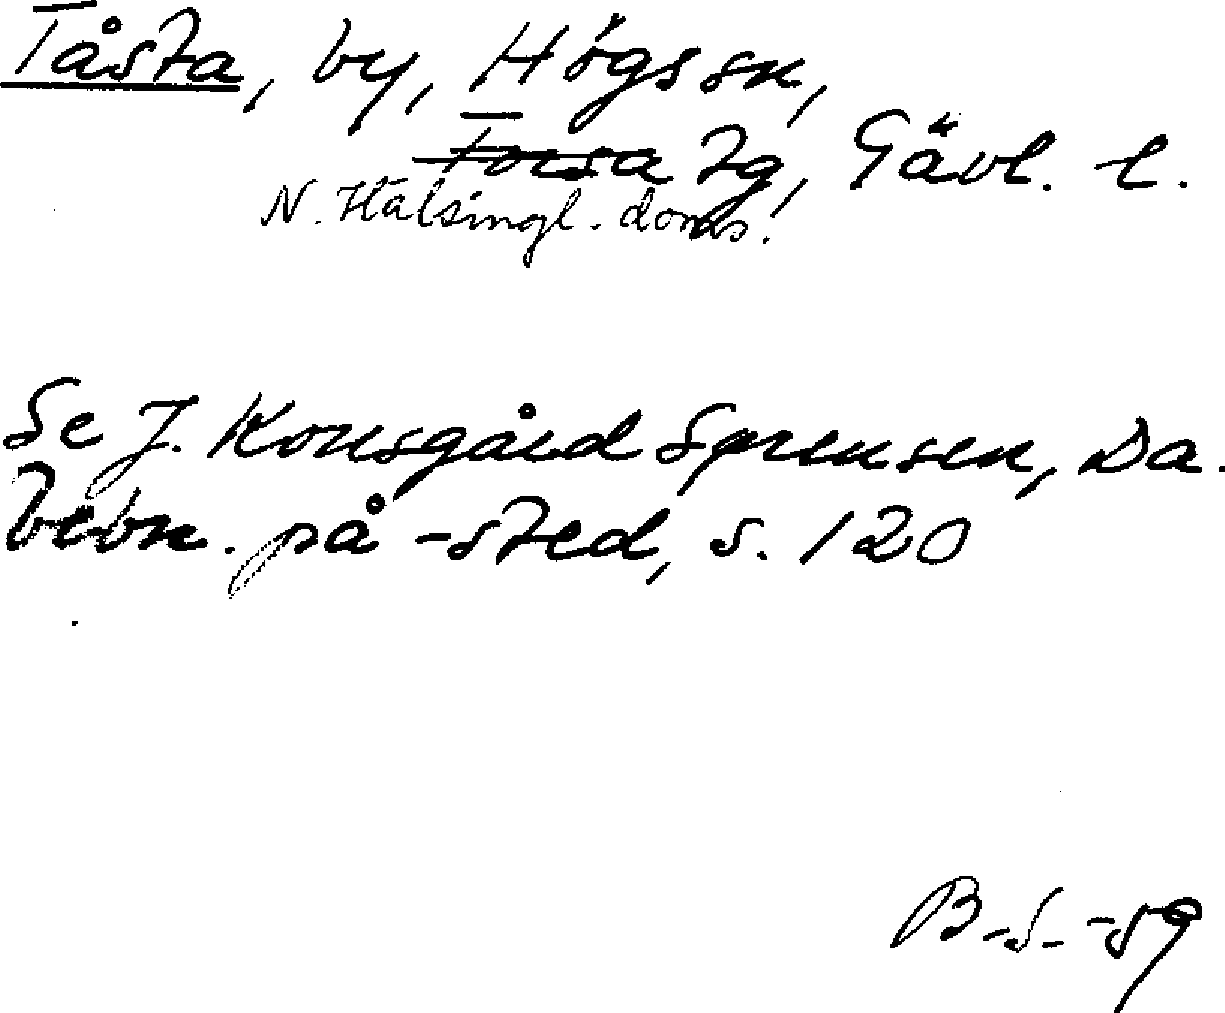 Tåsta, by, Högs sn,
Forsa tg, Gävl. l.
N. Hälsingl. doms.
Se J. Kousgård Sørensen, Da.
bebn. på -sted, s. 120
B-S- -59